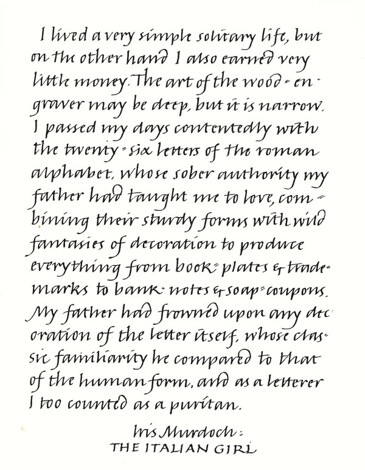 I lived a very simple solitary life, but
on the other hand I also earned very
little money. The art of the wood-en-
graver may be deep, but it is narrow.
I passed my days contentedly with
the twenty-six letters of the roman
alphabet, whose sober authority my
father had taught me to love, com-
bining their sturdy forms with wild
fantasies of decoration to produce
everything from book-plates & trade-
marks to bank-notes & soap-coupons.
My father had frowned upon any dec
oration of the letter itself, whose clas-
sic familiarity he compared to that
of the human form, and as a letterer
I too counted as a puritan.
Iris Murdoch:
THE ITALIAN GIRL